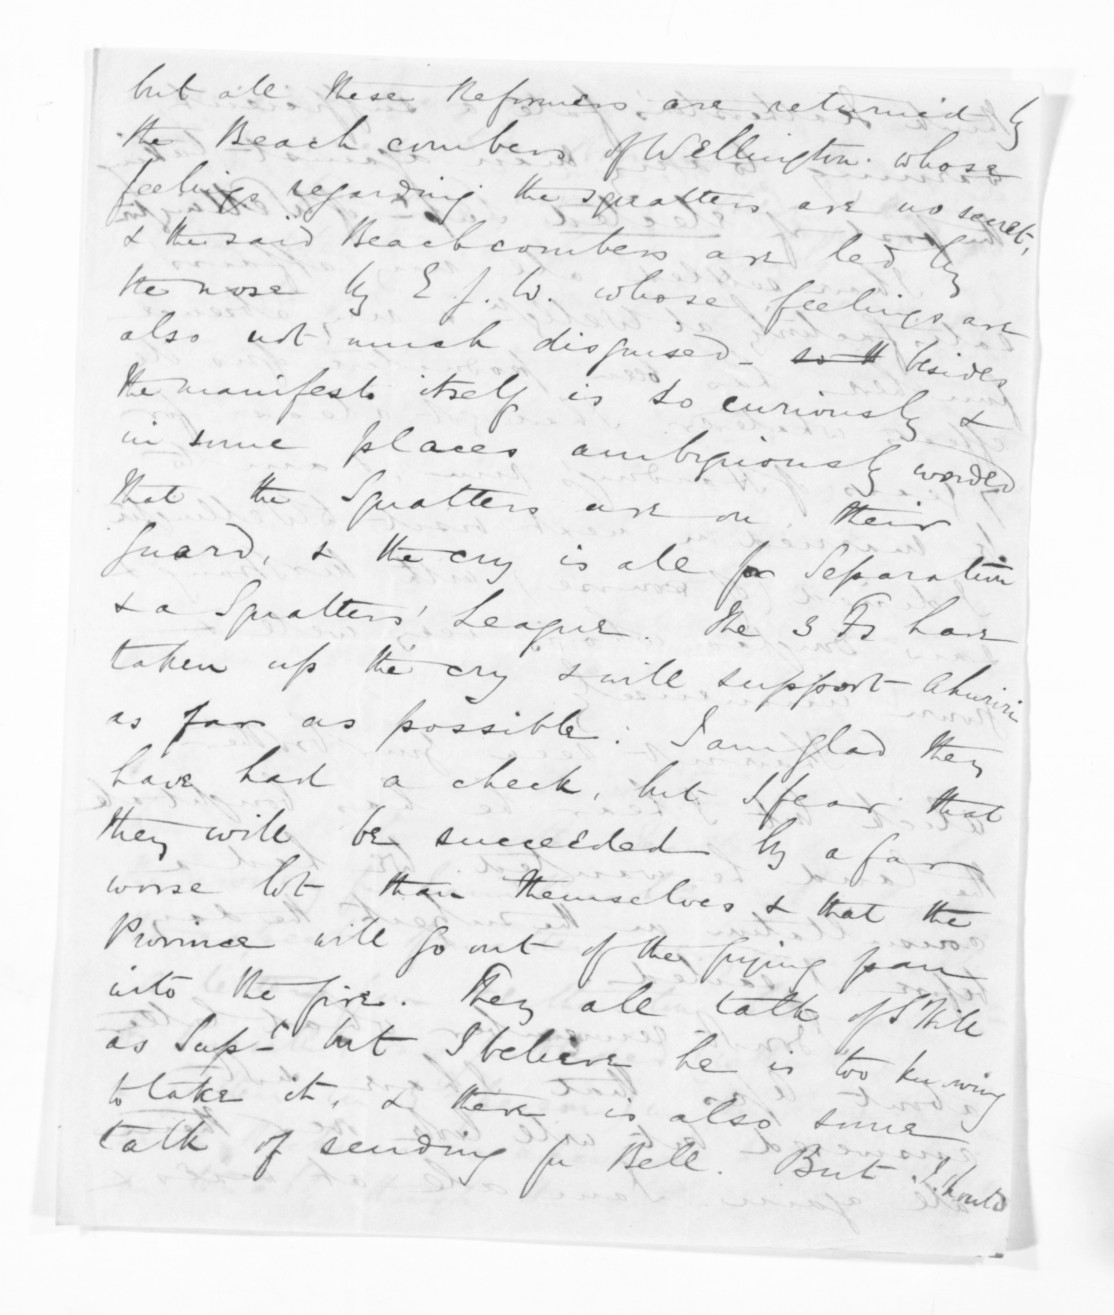 but all these Reformers are returned by
the Beach combers of Wellington. whose
feelings regarding the squatters are no secret,
& the said Beachcombers are led by
the nose by E. J. W. whose feelings are
also not much disguised – besides
the manifesto itself is so curiously &
in some places ambiguously worded
that the Squatters are on their
guard, & the cry is all for Separation
& a Squatters' League. The 3 Fs have
taken up the cry & will support Ahuriri
as far as possible. I am glad they
have had a check, but I fear that
they will be succeeded by a far
worse lot than themselves & that the
Province will go out of the frying pan
into the fire. They all talk of St Hill
as Supt but I believe he is too knowing
to take it, & there is also some
talk of sending for Bell. But I should